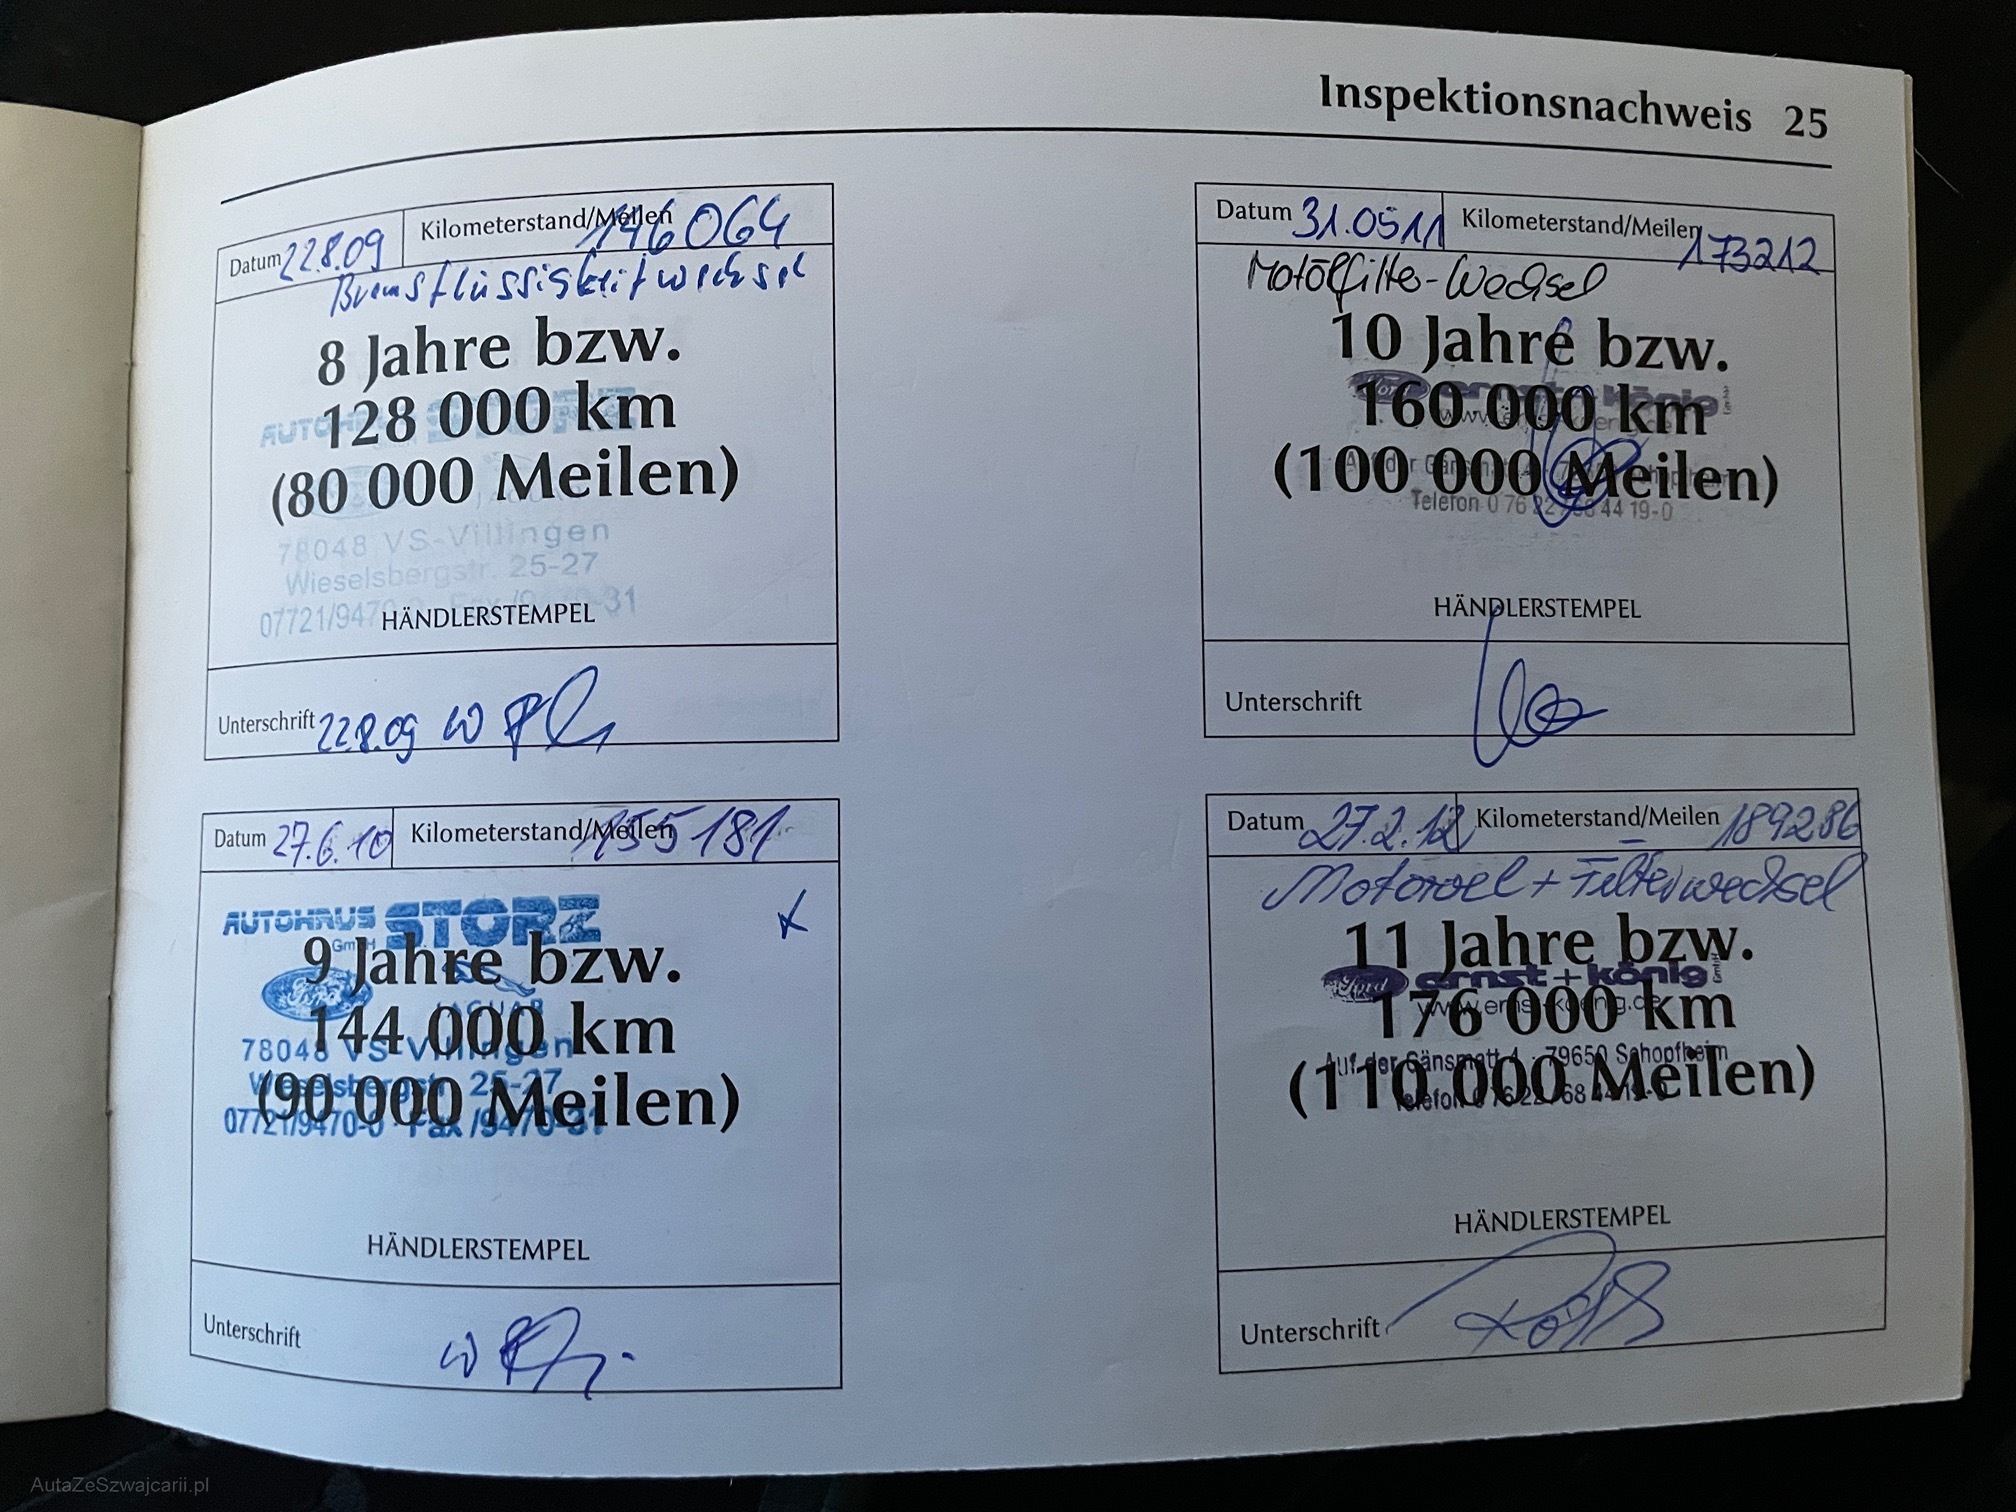 Inspektionsnachweis 25
Datum 22.8.09 Kilometerstand/Meilen 146064
Bremsflüssigkeitwechsel
8 Jahre bzw.
128 000 km
(80 000 Meilen)
AUTOHAUS STORZ
78048 VS-Villingen
Wieselsbergstr. 25-27
07721/9470-0 Fax /9470-31
HÄNDLERSTEMPEL
Unterschrift 22.8.09
Datum 27.6.10 Kilometerstand/Meilen 155181
AUTOHAUS STORZ
GmbH
9 Jahre bzw.
Ford JAGUAR
144 000 km
78048 VS-Villingen
Wieselsbergstr. 25-27
(90 000 Meilen)
07721/9470-0 · Fax /9470-31
HÄNDLERSTEMPEL
Unterschrift
Datum 31.0511 Kilometerstand/Meilen 173212
Motölfilter-Wechsel
10 Jahre bzw.
Ford ernst+könig GmbH
160 000 km
www.ernst-koenig.de
(100 000 Meilen)
Auf der Gänsmatt 4 · 79650 Schopfheim
Telefon 0 76 22 / 68 44 19-0
HÄNDLERSTEMPEL
Unterschrift
Datum 27.2.12 Kilometerstand/Meilen 189286
Motoroel + Filterwechsel
11 Jahre bzw.
Ford ernst+könig GmbH
176 000 km
www.ernst-koenig.de
Auf der Gänsmatt 4 · 79650 Schopfheim
(110 000 Meilen)
Telefon 0 76 22 / 68 44 19-0
HÄNDLERSTEMPEL
Unterschrift
AutaZeSzwajcarii.pl